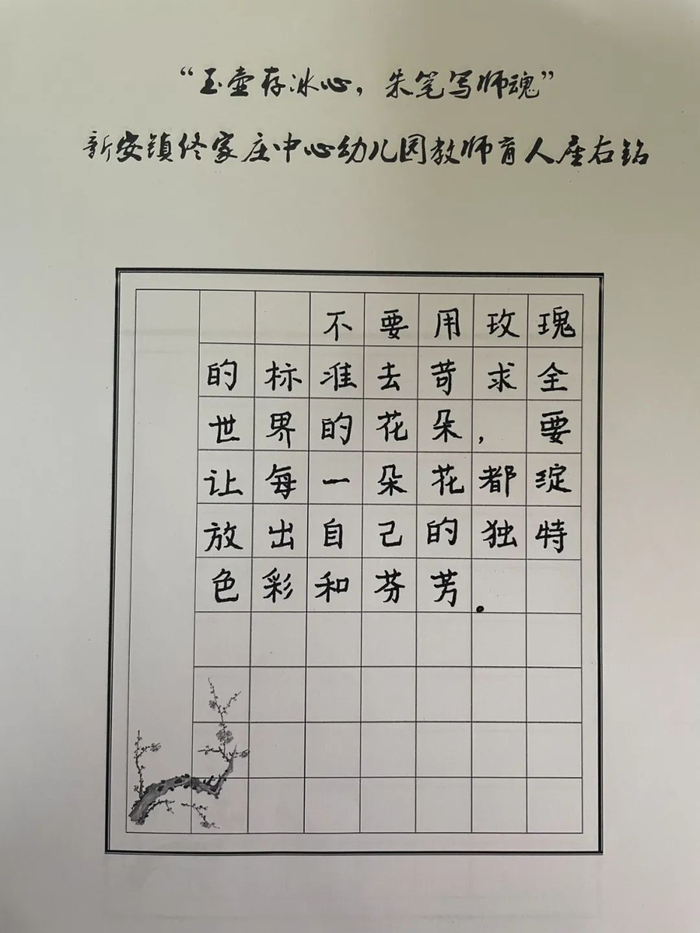 “玉壶存冰心，朱笔写师魂”
新安镇佟家庄中心幼儿园教师育人座右铭
不要用玫瑰
的标准去苛求全
世界的花朵，要
让每一朵花都绽
放出自己的独特
色彩和芬芳。